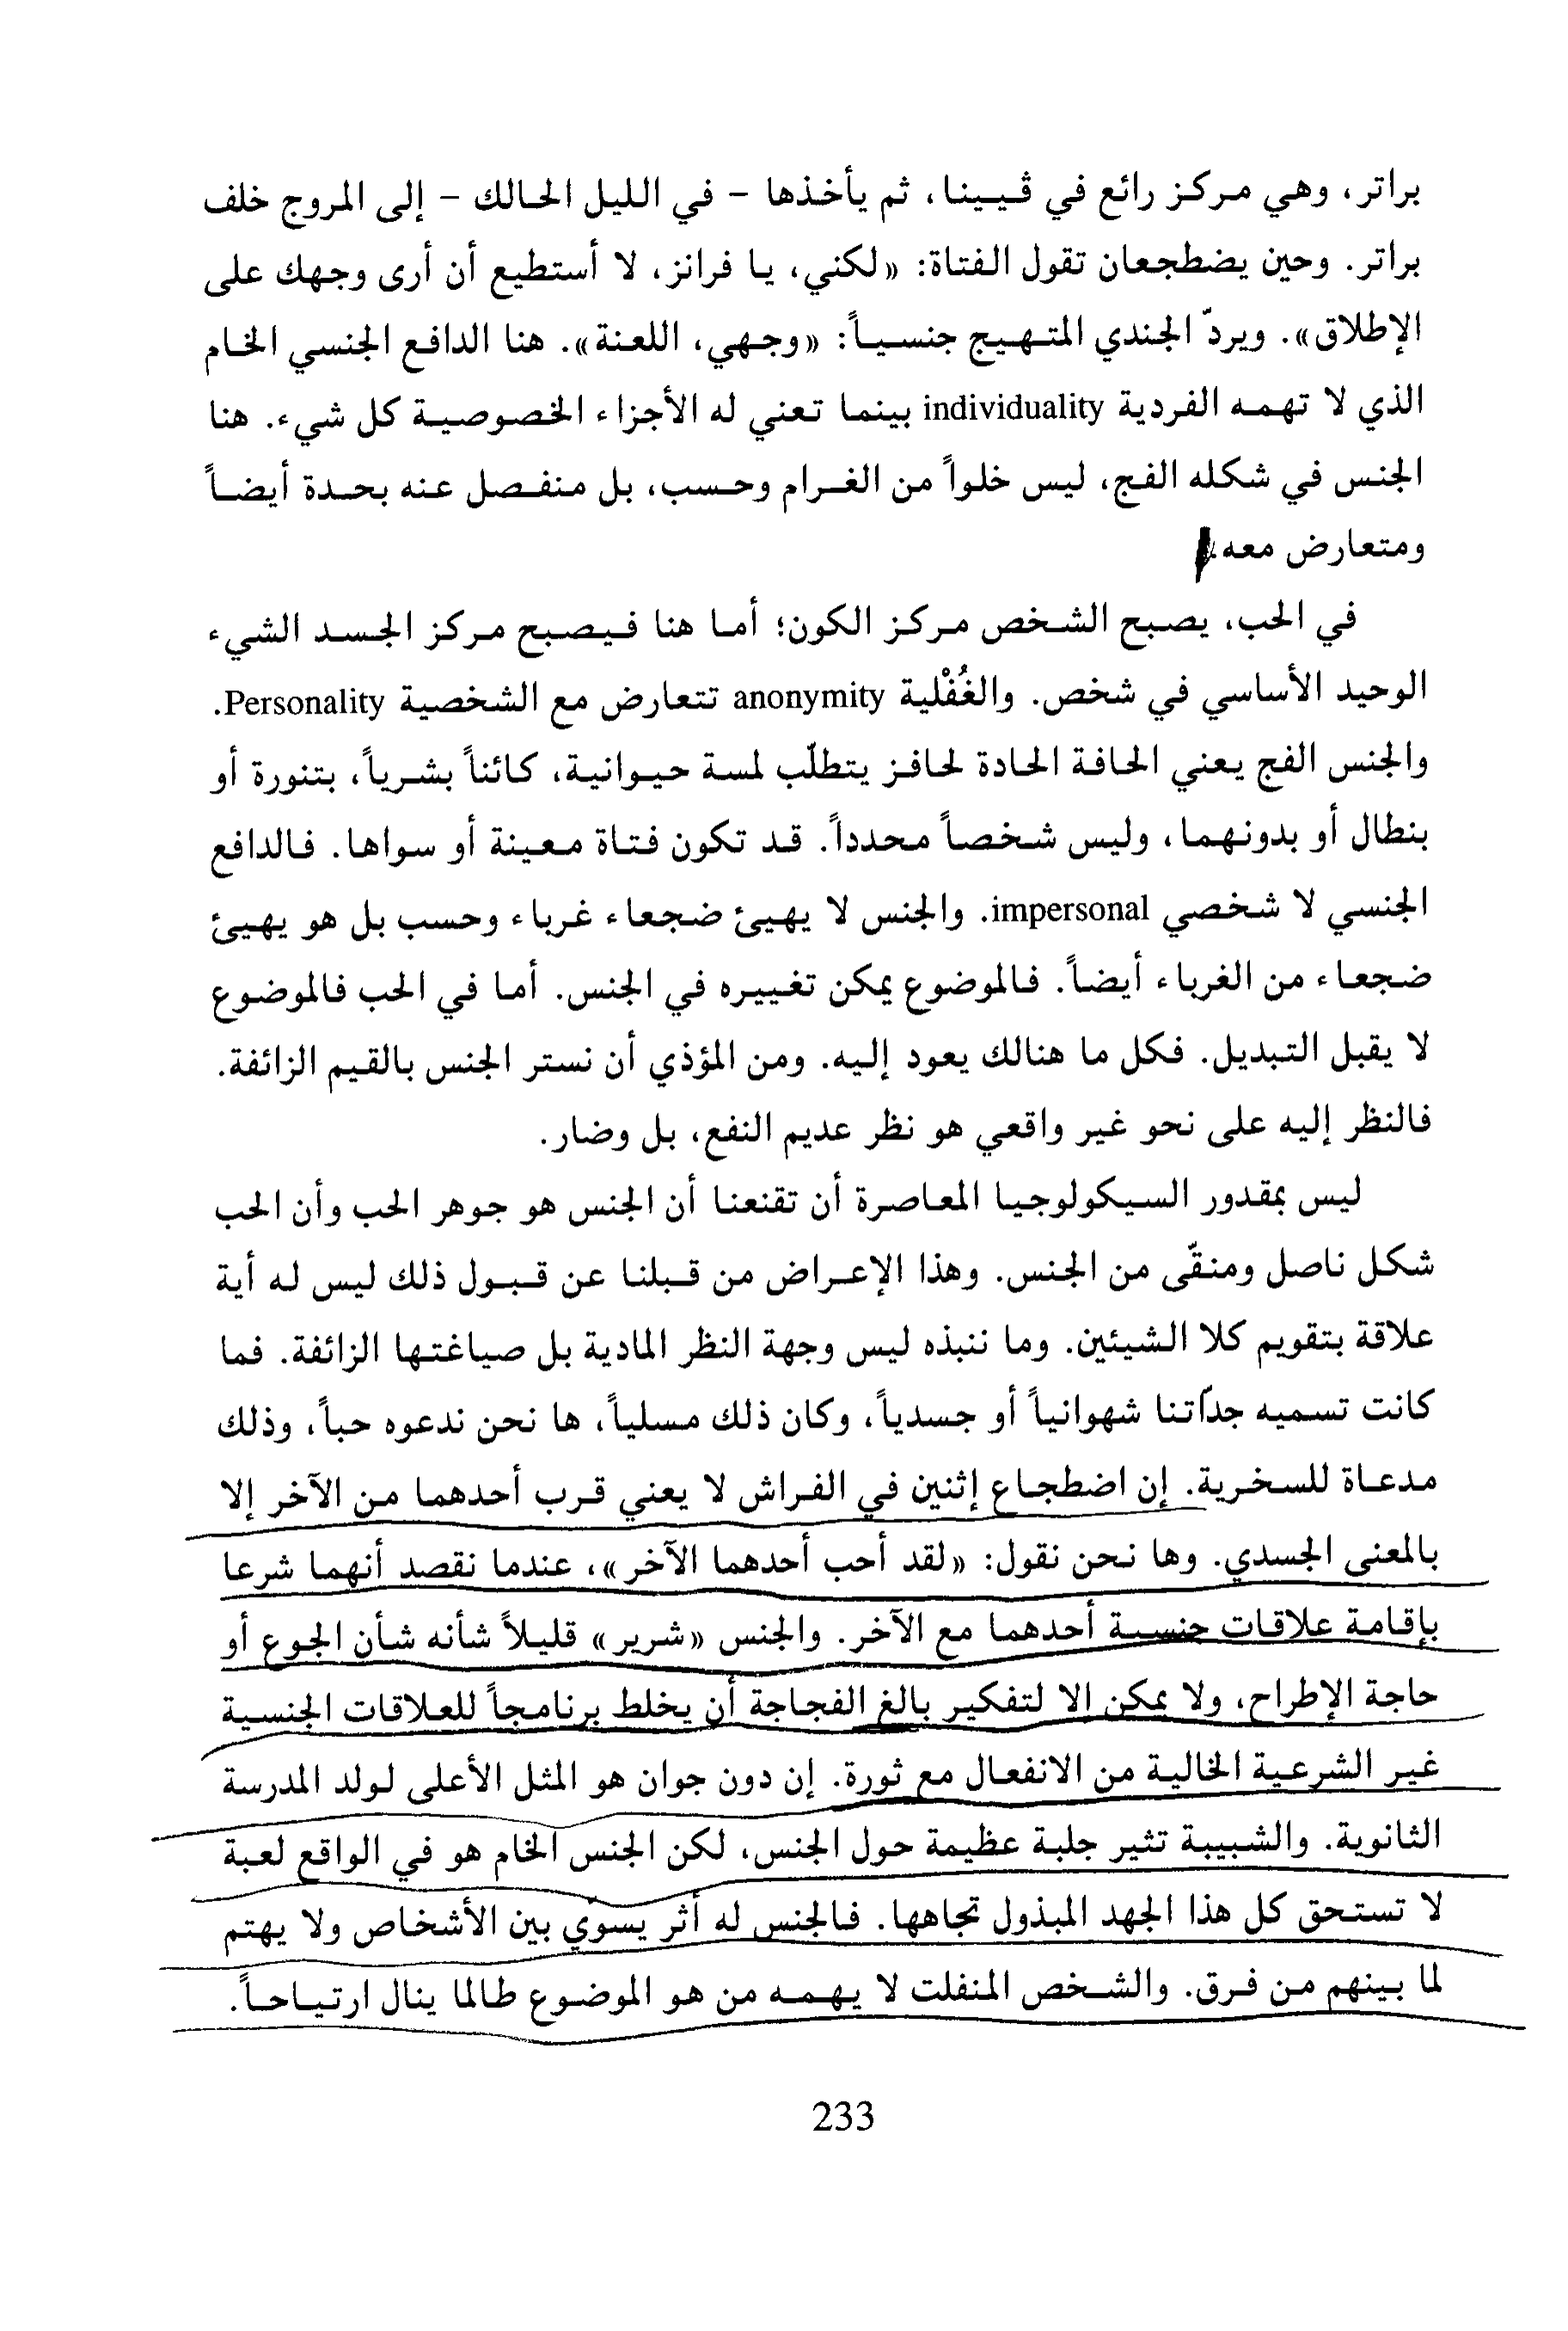 براتر، وهي مركز رائع في ڤيينا، ثم يأخذها - في الليل الحالك - إلى المروج خلف
براتر. وحين يضطجعان تقول الفتاة: «لكني، يا فرانز، لا أستطيع أن أرى وجهك على
الإطلاق». ويردّ الجندي المتهيج جنسياً: «وجهي، اللعنة». هنا الدافع الجنسي الخام
الذي لا تهمه الفردية individuality بينما تعني له الأجزاء الخصوصية كل شيء. هنا
الجنس في شكله الفج، ليس خلواً من الغرام وحسب، بل منفصل عنه بحدة أيضاً
ومتعارض معه.
في الحب، يصبح الشخص مركز الكون؛ أما هنا فيصبح مركز الجسد الشيء
الوحيد الأساسي في شخص. والغُفْلية anonymity تتعارض مع الشخصية Personality.
والجنس الفج يعني الحافة الحادة لحافز يتطلّب لمسة حيوانية، كائناً بشرياً، بتنورة أو
بنطال أو بدونهما، وليس شخصاً محدداً. قد تكون فتاة معينة أو سواها. فالدافع
الجنسي لا شخصي impersonal. والجنس لا يهيئ ضجعاء غرباء وحسب بل هو يهيئ
ضجعاء من الغرباء أيضاً. فالموضوع يمكن تغييره في الجنس. أما في الحب فالموضوع
لا يقبل التبديل. فكل ما هنالك يعود إليه. ومن المؤذي أن نستر الجنس بالقيم الزائفة.
فالنظر إليه على نحو غير واقعي هو نظر عديم النفع، بل وضار.
ليس بمقدور السيكولوجيا المعاصرة أن تقنعنا أن الجنس هو جوهر الحب وأن الحب
شكل ناصل ومنقّى من الجنس. وهذا الإعراض من قبلنا عن قبول ذلك ليس له أية
علاقة بتقويم كلا الشيئين. وما ننبذه ليس وجهة النظر المادية بل صياغتها الزائفة. فما
كانت تسميه جدّاتنا شهوانياً أو جسدياً، وكان ذلك مسلياً، ها نحن ندعوه حباً، وذلك
مدعاة للسخرية. إن اضطجاع إثنين في الفراش لا يعني قرب أحدهما من الآخر إلا
بالمعنى الجسدي. وها نحن نقول: «لقد أحب أحدهما الآخر»، عندما نقصد أنهما شرعا
بإقامة علاقات جنسية أحدهما مع الآخر. والجنس «شرير» قليلاً شأنه شأن الجوع أو
حاجة الإطراح، ولا يمكن إلا لتفكير بالغ الفجاجة أن يخلط برنامجاً للعلاقات الجنسية
غير الشرعية الخالية من الانفعال مع ثورة. إن دون جوان هو المثل الأعلى لولد المدرسة
الثانوية. والشبيبة تثير جلبة عظيمة حول الجنس، لكن الجنس الخام هو في الواقع لعبة
لا تستحق كل هذا الجهد المبذول تجاهها. فالجنس له أثر يسوّي بين الأشخاص ولا يهتم
لما بينهم من فرق. والشخص المنفلت لا يهمه من هو الموضوع طالما ينال ارتياحاً.
233